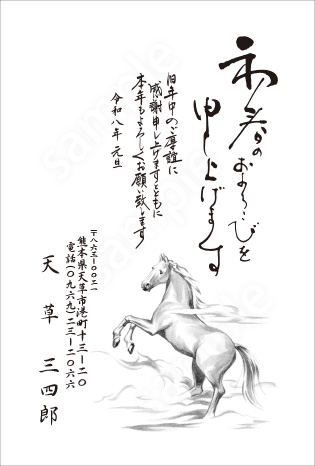 初春のおよろこびを
申し上げます
旧年中のご厚誼に
感謝申し上げますとともに
本年もよろしくお願い致します
令和八年 元旦
〒八六三-〇〇二一
熊本県天草市港町十三-二〇
電話(〇九六九)二三-二〇六六
天草 三四郎
sample